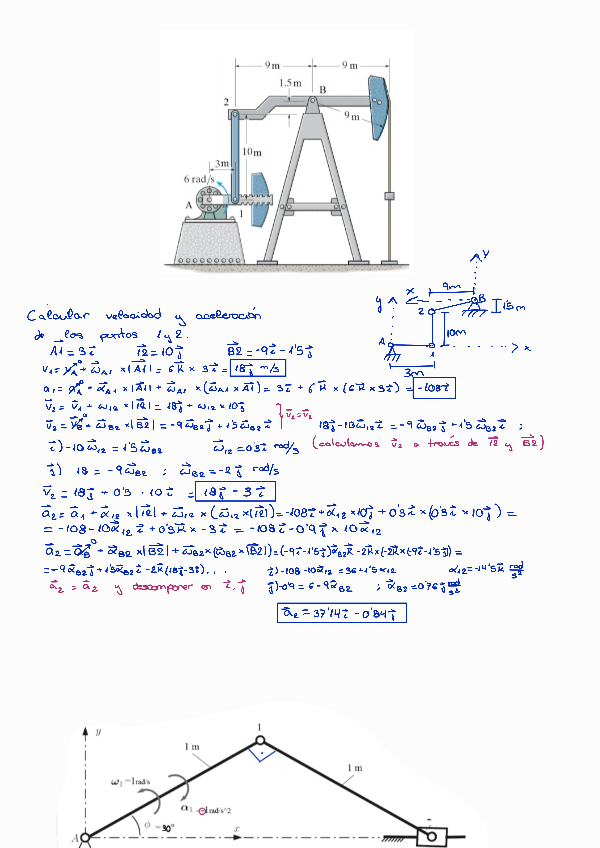 9 m 9 m
1.5 m B
2
9 m
10 m
3 m
6 rad/s
A 1
y
9m
x
y B 1'5m
2
10m
A 1 x
3m
Calcular velocidad y aceleración
de los puntos 1 y 2.
A1 = 3i 12 = 10j B2 = -9i - 1'5j
v1 = vA + ωA1 × |A1| = 6k × 3i = 18j m/s
a1 = aA + αA1 × |A1| + ωA1 × (ωA1 × A1) = 3i + 6k × (6k × 3i) = -108i
v2 = v1 + ω12 × |12| = 18j + ω12 × 10j
v2 = vB + ωB2 × |B2| = -9ωB2 j + 1'5ωB2 i } v2 = v2 18j - 10ω12 i = -9ωB2 j + 1'5ωB2 i ;
i) -10ω12 = 1'5ωB2 ω12 = 0'3k rad/s (calculamos v2 a través de 12 y B2)
j) 18 = -9ωB2 ; ωB2 = -2 rad/s
v2 = 18j + 0'3 · 10i = 18j - 3i
a2 = a1 + α12 × |12| + ω12 × (ω12 × |12|) = -108i + α12 × 10j + 0'3k × (0'3k × 10j) =
= -108 - 10α12 i + 0'3k × -3i = -108i - 0'9j × 10α12
a2 = aB + αB2 × |B2| + ωB2 × (ωB2 × |B2|) = (-9i - 1'5j) αB2k - 2k × (-2k × (-9i - 1'5j) =
= -9αB2 j + 1'5αB2 i - 2k (18j - 3i) . . . i) -108 - 10α12 = 36 + 1'5α12 α12 = -14'5k rad/s²
a2 = a2 y descomponer en i, j j) -0'9 = 6 - 9αB2 ; αB2 = 0'76j rad/s²
a2 = 37'14i - 0'84j
y 1
1 m
1 m
ω1 = 1 rad/s
α1 = -1 rad/s^2
ϕ = 30°
A x